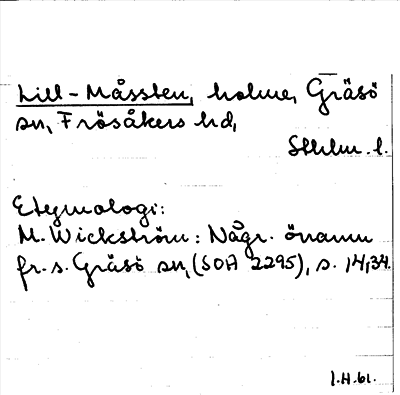 Lill-Måssten, holme, Gräsö
sn, Frösåkers hd,
Sthlm. l.
Etymologi:
M. Wickström: Någr. önamn
fr. s. Gräsö sn, (SOA 2295), s. 14, 34.
I.H. 61.